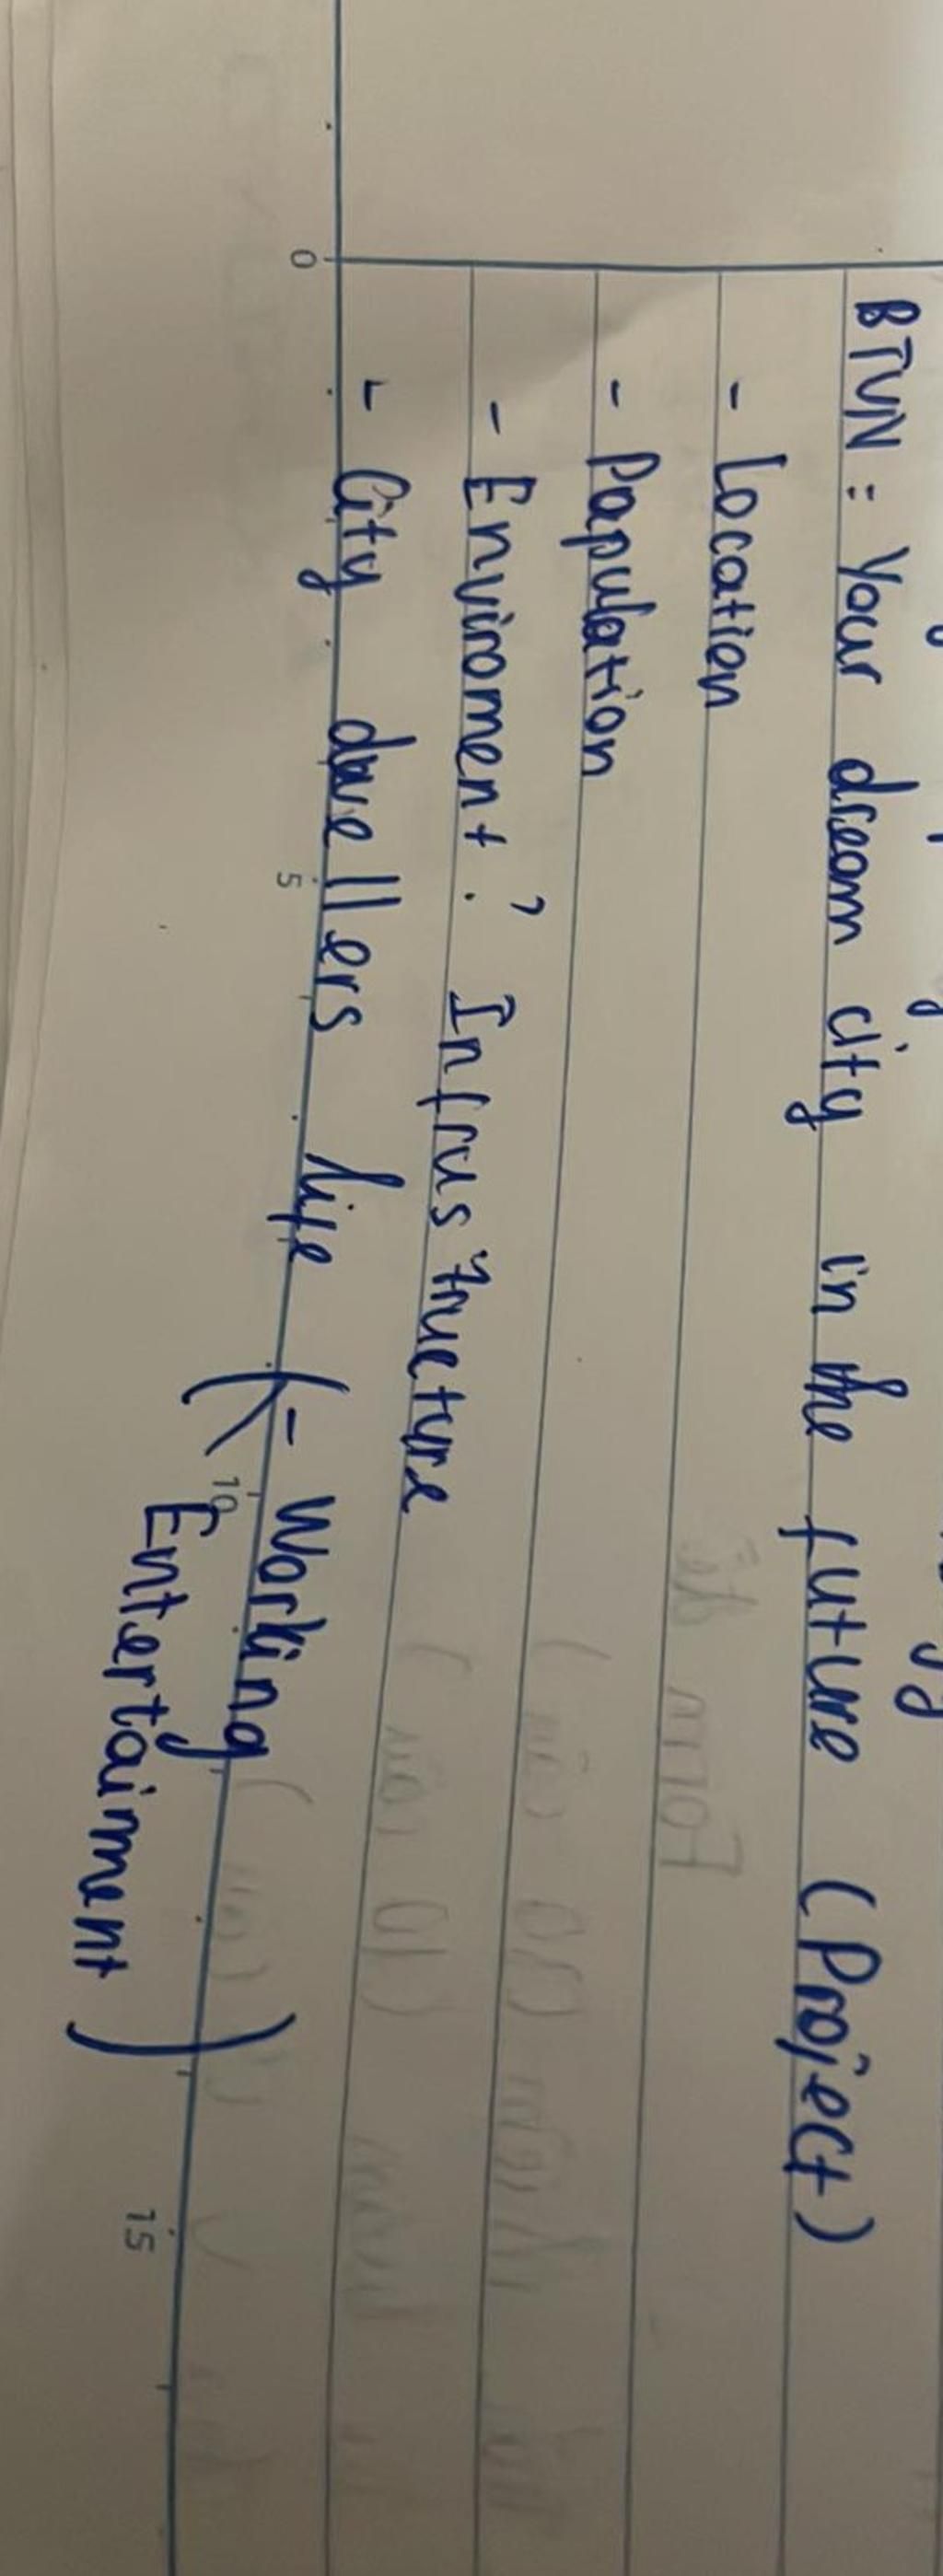 BTVN : Your dream city in the future (Project)
- Location
- Population
- Enviroment ; Infrustructure
- City dwellers life (- Working
Entertainment)
0
5
10
15